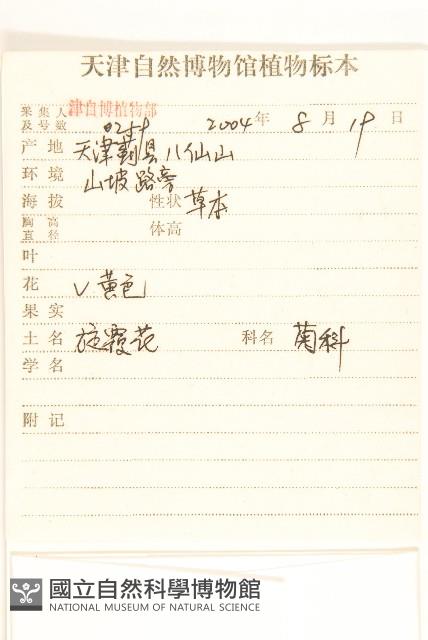 天津自然博物馆植物标本
采集人 津自博植物部
及号数 0259 2004年 8月 19日
产地 天津蓟县八仙山
环境 山坡路旁
海拔 性状 草本
胸高
直径 体高
叶
花 ∨ 黄色
果实
土名 旋覆花 科名 菊科
学名
附记
國立自然科學博物館
NATIONAL MUSEUM OF NATURAL SCIENCE